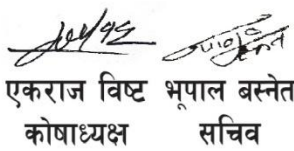 एकराज विष्ट भूपाल बस्नेत
कोषाध्यक्ष सचिव